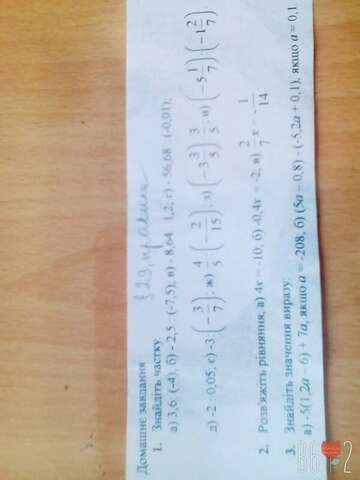 § 29, правила
Домашнє завдання
1. Знайдіть частку.
а) 3,6 : (-4), б) - 2,5 : (-7,5), в) - 8,64 : 1,2; г) - 56,68 : (-0,01),
д) -2 : 0,05, є) -3 : (- 3/7) ; ж) 4/5 : (- 2/15) ; з) (-3 3/5) : 3/5 ; и) (-5 1/7) : (-1 2/7)
2. Розв'яжіть рівняння, а) 4x = -10; б) -0,4x = -2, в) 2/7 x = - 1/14
3. Знайдіть значення виразу:
а) -5(1,2a – 6) + 7a, якщо a = -208, б) (5a – 0,8) - (-5,2a + 0,1), якщо a = 0,1